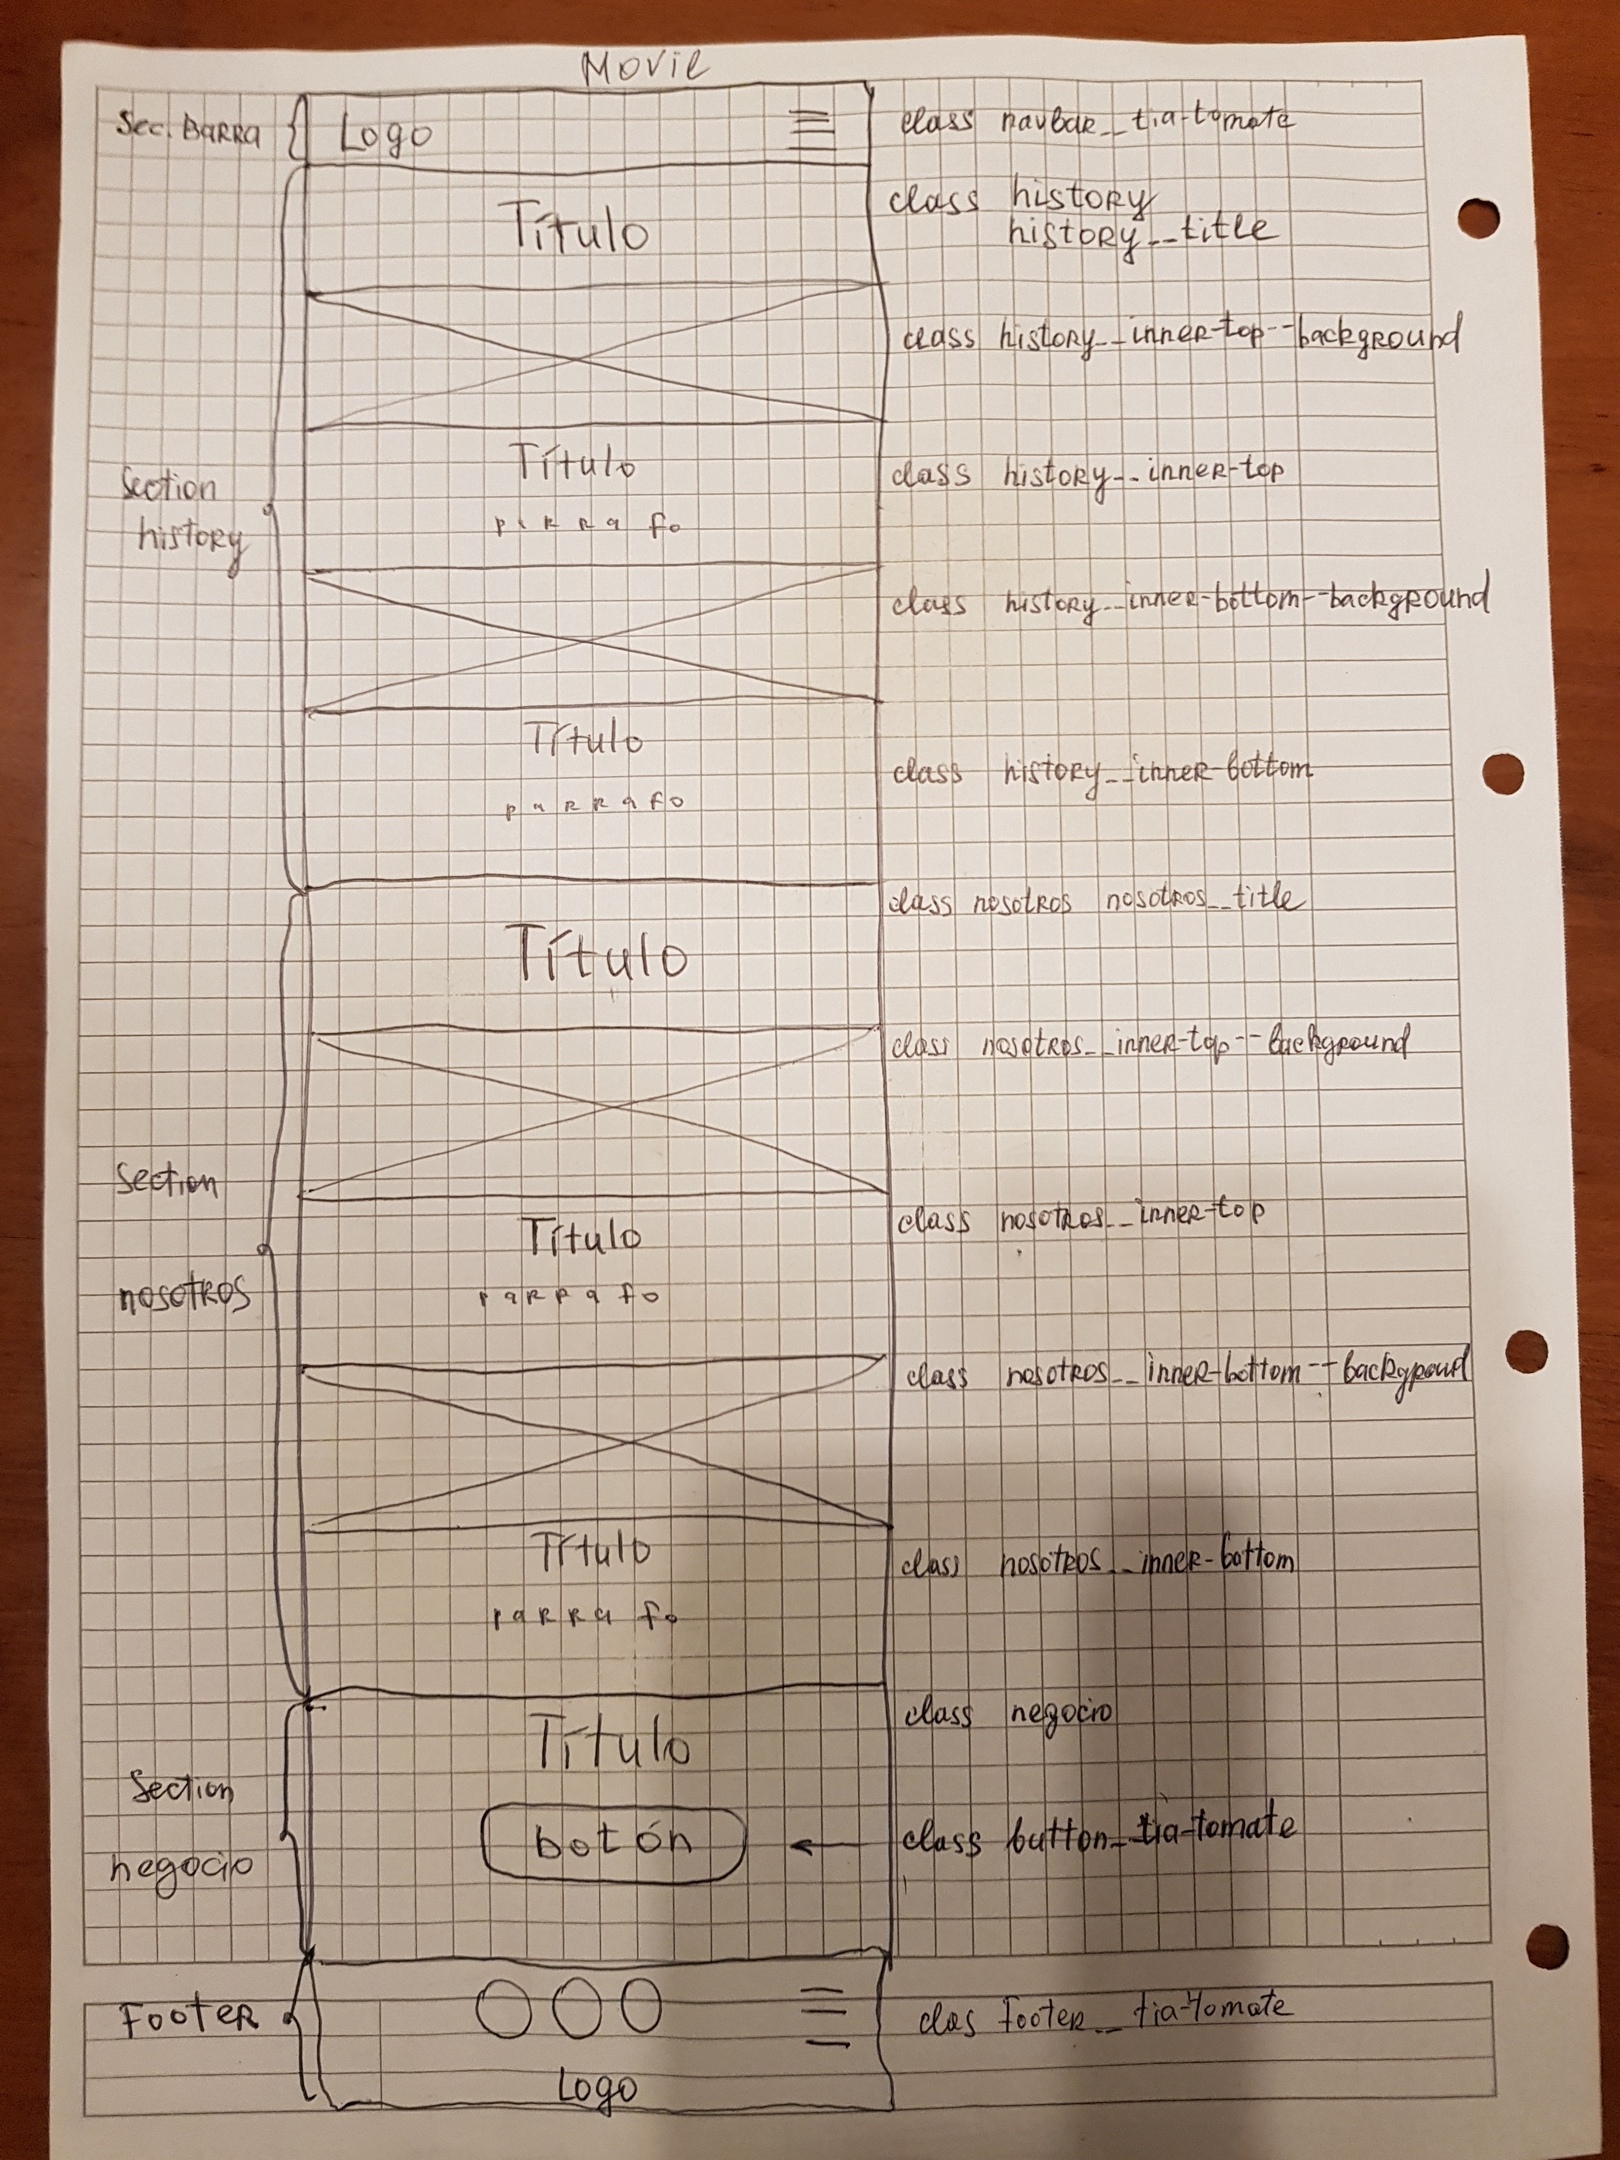 Movil
Sec. BARRA
Logo
class navbar__tia-tomate
Título
class history
history__title
class history__inner-top--background
Section
history
Título
parrafo
class history__inner-top
class history__inner-bottom--background
Título
parrafo
class history__inner-bottom
class nosotros nosotros__title
Título
class nosotros__inner-top--background
Section
nosotros
Título
parrafo
class nosotros__inner-top
class nosotros__inner-bottom--background
Título
parrafo
class nosotros__inner-bottom
class negocio
Título
Section
negocio
botón
class button__tia-tomate
Footer
clas footer__tia-tomate
Logo